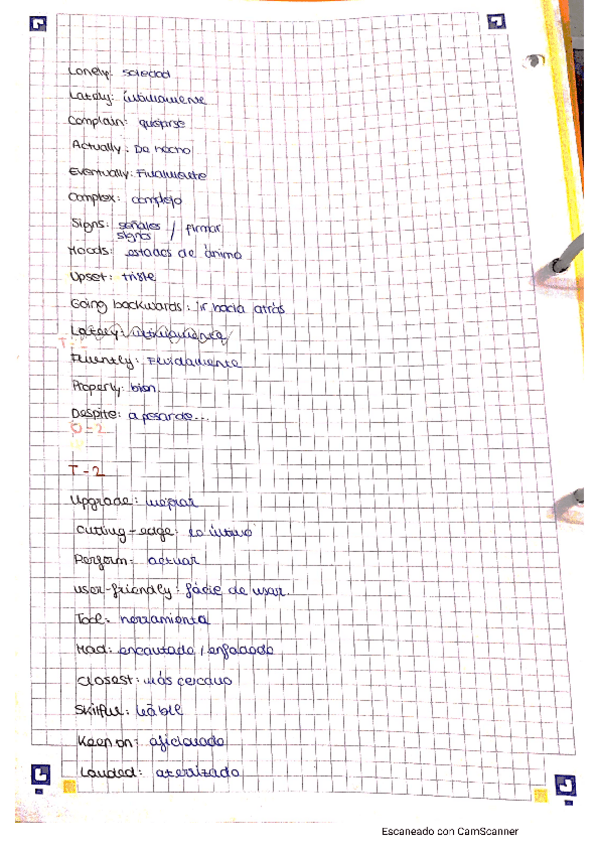 Lonely: soledad
Lately: últimamente
Complain: quejarse
Actually: De hecho
Eventually: Finalmente
Complex: complejo
Signs: señales / firmar
signos
Moods: estados de ánimo
Upset: triste
Going backwards: ir hacia atrás
Lately: últimamente
Fluently: Fluidamente
Properly: bien.
Despite: a pesar de...
T-2
Upgrade: mejorar
Cutting-edge: lo último
Perform: actuar
User-friendly: fácil de usar.
Tool: herramienta
Mad: encantado / enfadado
Closest: más cercano
Skilful: hábil
Keen on: aficionado
Landed: aterrizado
Escaneado con CamScanner